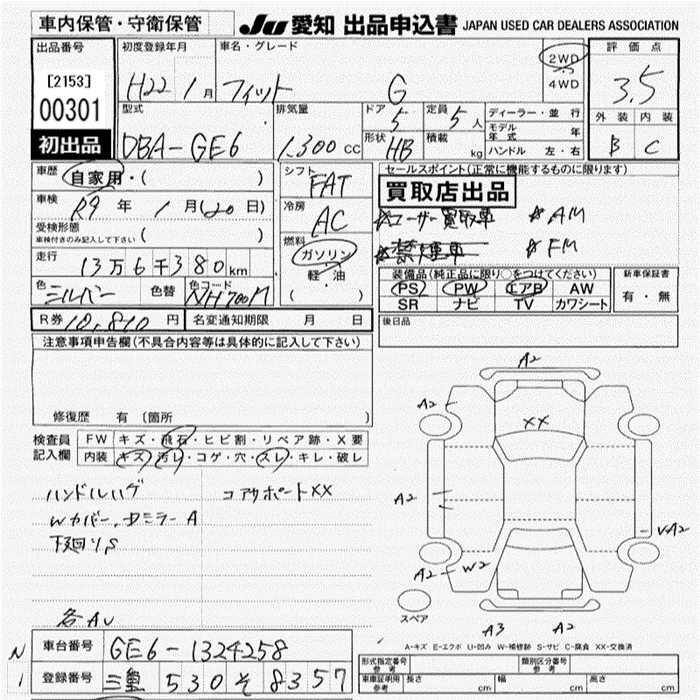 車内保管・守衛保管
JU 愛知 出品申込書 JAPAN USED CAR DEALERS ASSOCIATION
出品番号 [2153] 00301 初出品
初度登録年月 H22 1月
車名・グレード フィット G
2WD 4WD
評価点 3.5
外装 内装
B C
型式 DBA-GE6
排気量 1,300 CC
ドア 5 定員 5人
形状 HB 積載 kg
ディーラー・並行
モデル年式 年
ハンドル 左・右
車歴 自家用・( )
車検 R9年 1月(20日)
受検形態 車検付きのみ記入して下さい ( )
走行 13万6千380km
色 シルバー 色替 色コード NH700M
シフト FAT
冷房 AC
燃料 ガソリン 軽・油 ( )
セールスポイント(正常に機能するものに限ります)
買取店出品
☆ユーザー買取車 ☆AM
☆禁煙車 ☆FM
装備品(純正品に限り○をつけてください)
PS PW エアB AW
SR ナビ TV カワシート
新車保証書
有・無
R券 10,810円 名変通知期限 月 日
後日品
注意事項申告欄(不具合内容等は具体的に記入して下さい)
修復歴 有 〔箇所 〕
検査員記入欄
FW キズ・飛石・ヒビ割・リペア跡・X要
内装 キズ・汚レ・コゲ・穴・スレ・キレ・破レ
ハンドルハゲ コアサポートXX
Wカバー、ドミラーA
下廻りS
各AU
A2
A2
XX
A2
A2
A2 W2
A3 A2
スペア
A-キズ E-エクボ U-凹み W-補修跡 S-サビ C-腐食 XX-交換済
車台番号 GE6-1324258
N
1
登録番号 三重 530 そ 8357
形式指定番号 参考 類別区分番号 参考
車庫証明用 参考 長さ cm 幅 cm 高さ cm